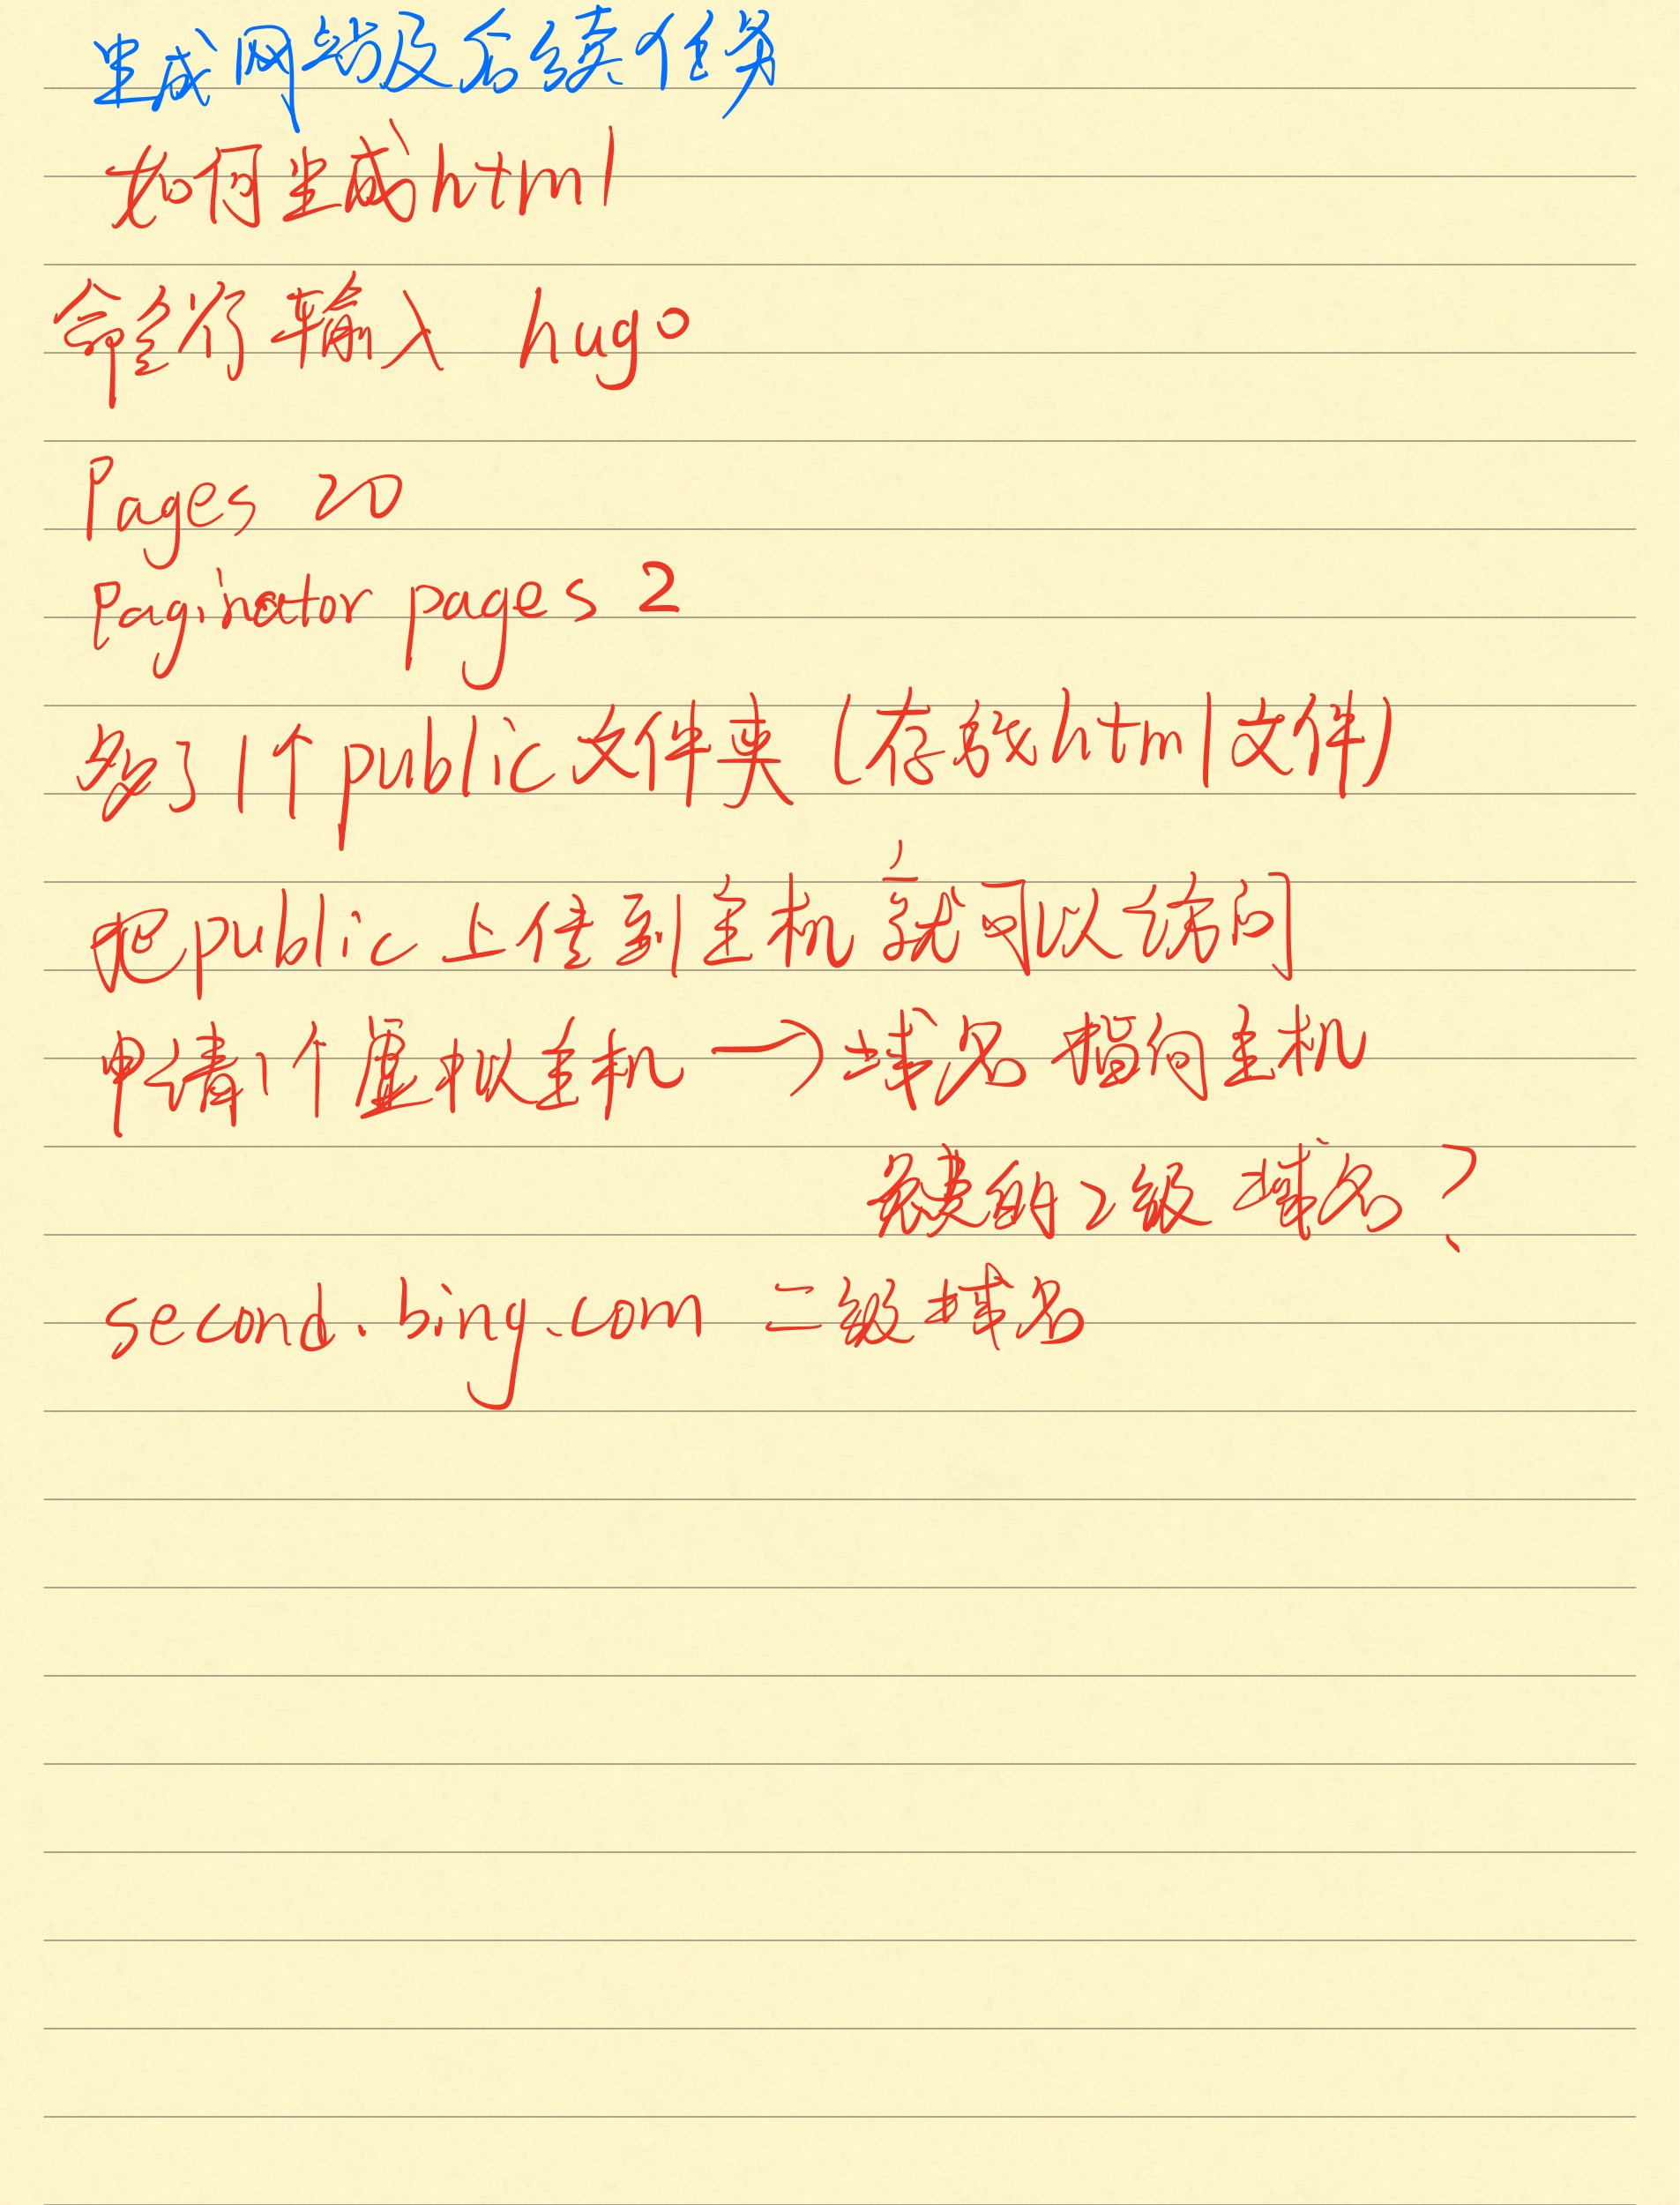 生成网站及后续任务
如何生成html
命令行输入 hugo
Pages 20
Paginator pages 2
多了1个public文件夹(存放html文件)
把public上传到主机 就可以访问
申请1个虚拟主机→域名 指向主机
的2级域名?
second.bing.com 二级域名